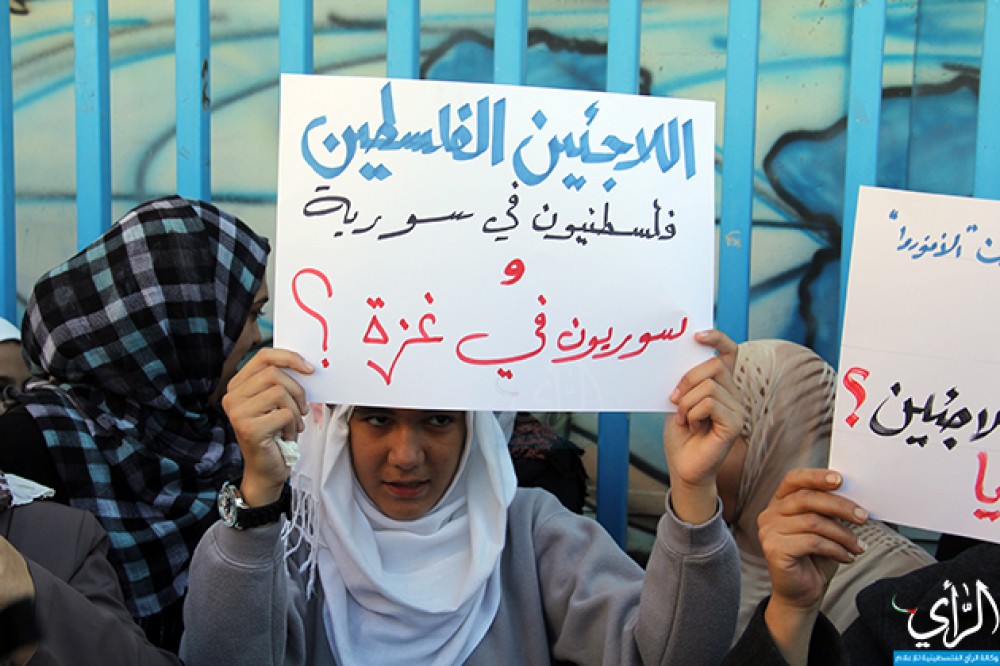 اللاجئين الفلسطين
فلسطنيون في سورية
و
سوريون في غزة ؟
"الأنوروا"
لاجئين ؟
يا
الرأي
وكالة الرأي الفلسطينية للإعلام